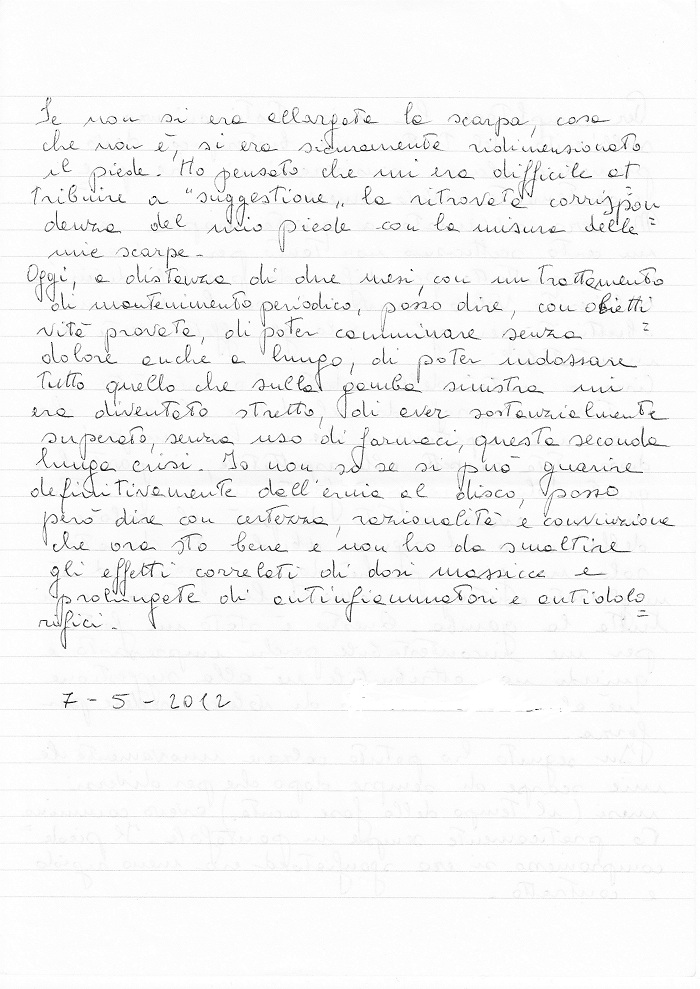 Se non si era allargata la scarpa, cosa
che non è, si era sicuramente ridimensionato
il piede. Ho pensato che mi era difficile at
tribuire a "suggestione" la ritrovata corrispon=
denza del mio piede con la misura delle
mie scarpe.
Oggi, a distanza di due mesi, con un trattamento
di mantenimento periodico, posso dire, con obietti=
vità provata, di poter camminare senza
dolore anche a lungo, di poter indossare
tutto quello che sulla gamba sinistra mi
era diventato stretto, di aver sostanzialmente
superato, senza uso di farmaci, questa seconda
lunga crisi. Io non so se si può guarire
definitivamente dall'ernia al disco, posso
però dire con certezza, razionalità e convinzione
che ora sto bene e non ho da smaltire
gli effetti correlati di dosi massicce e
prolungate di antinfiammatori e antidolo=
rifici.
7-5-2012